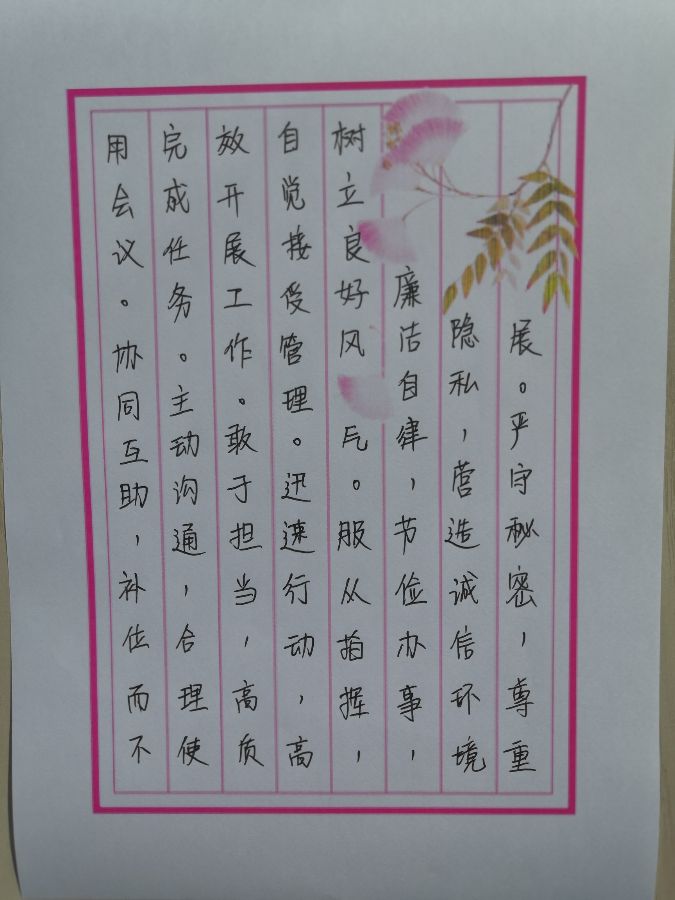 展。严守秘密，尊重
隐私，营造诚信环境
廉洁自律，节俭办事，
树立良好风气。服从指挥，
自觉接受管理。迅速行动，高
放开展工作。敢于担当，高质
完成任务。主动沟通，合理使
用会议。协同互助，补位而不